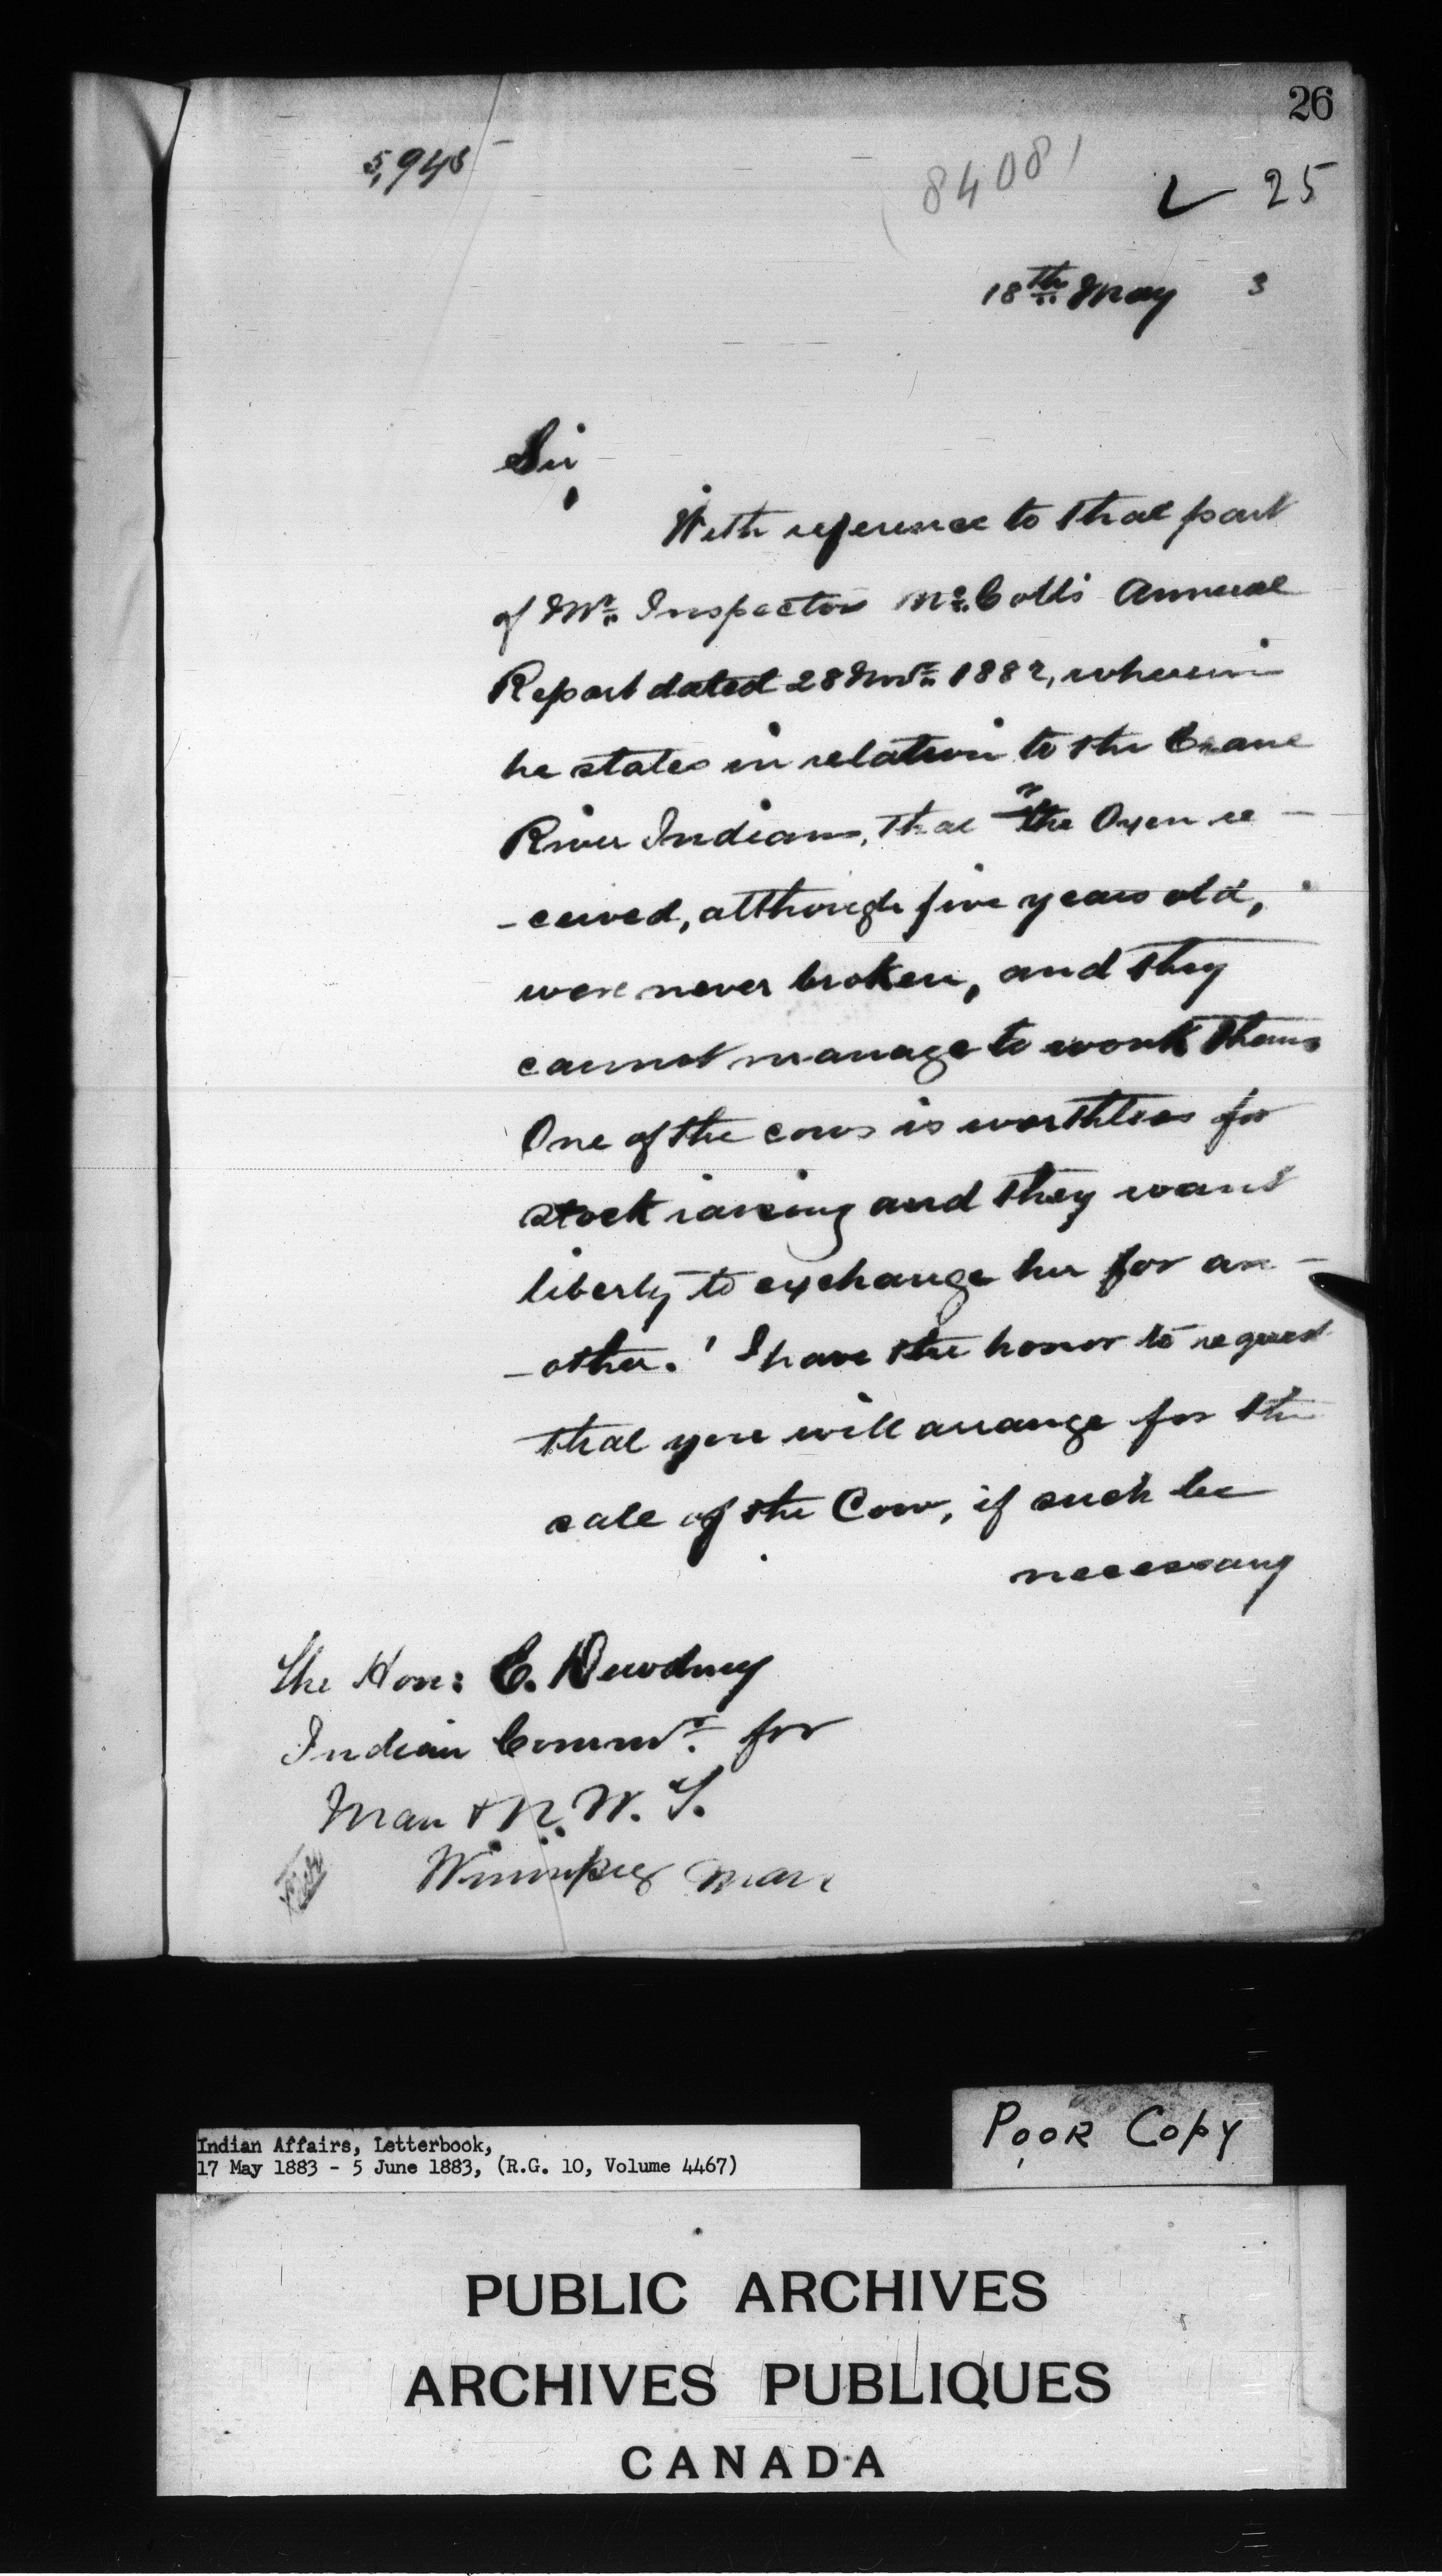 26
5,945
84081
25
18th May 3
Sir,
With reference to that part
of Mr. Inspector McColl's Annual
Report dated 28 Novr. 1882, wherein
he states in relation to the Crane
River Indians, that "the Oxen re-
-ceived, although five years old,
were never broken, and they
cannot manage to work them
One of the cows is worthless for
stock raising and they want
liberty to exchange her for an-
-other.' I have the honor to request
that you will arrange for the
sale of the Cow, if such be
necessary
The Hon: E. Dewdney
Indian Commr. for
Man & N. W. T.
Winnipeg Man
Indian Affairs, Letterbook,
17 May 1883 - 5 June 1883, (R.G. 10, Volume 4467)
POOR COPY
PUBLIC ARCHIVES
ARCHIVES PUBLIQUES
CANADA